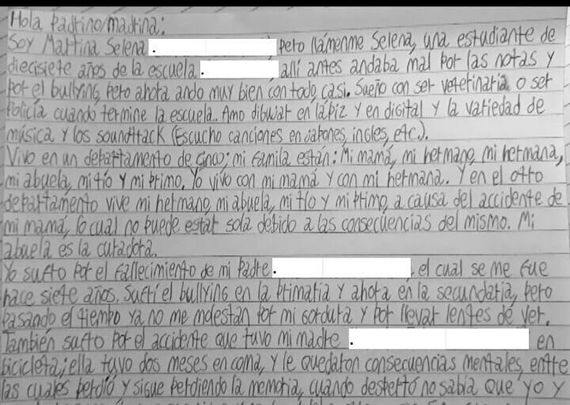 Hola padrino/madrina:
Soy Martina Selena . pero llámenme Selena, una estudiante de
diecisiete años de la escuela . allí antes andaba mal por las notas y
por el bullying, pero ahora ando muy bien con todo, casi. Sueño con ser veterinaria o ser
policía cuando termine la escuela. Amo dibujar en lápiz y en digital y la variedad de
música y los soundtrack (Escucho canciones en japones, ingles, etc.).
Vivo en un departamento de ; mi familia están: Mi mamá, mi hermano, mi hermana,
mi abuela, mi tío y mi primo. Yo vivo con mi mamá y con mi hermana. Y en el otro
departamento vive mi hermano, mi abuela, mi tío y mi primo a causa del accidente de
mi mamá, lo cual no puede estar sola debido a las consecuencias del mismo. Mi
abuela es la curadora.
Yo sufro por el fallecimiento de mi padre . , el cual se me fue
hace siete años. Sufrí el bullying en la primaria y ahora en la secundaria, pero
pasando el tiempo ya no me molestan por mi gordura y por llevar lentes de ver.
También sufro por el accidente que tuvo mi madre . en
bicicleta; ella tuvo dos meses en coma, y le quedaron consecuencias mentales, entre
las cuales perdió y sigue perdiendo la memoria, cuando despertó no sabía que yo y